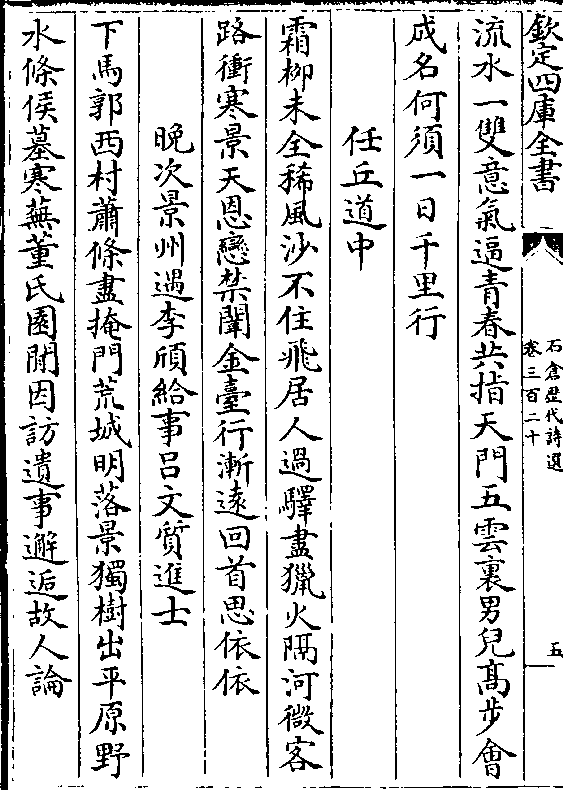 欽定四庫全書
石倉歷代詩選
卷三百二十
五
流水一雙意氣逼青春共指天門五雲裏男兒髙步㑹
成名何須一日千里行
任丘道中
霜柳未全稀風沙不住飛居人過驛盡獵火隔河微客
路衝寒景天恩戀禁闈金臺行漸逺回首思依依
晚次景州遇李頎給事呂文質進士
下馬郭西村蕭條盡掩門荒城明落景獨樹出平原野
水條侯墓寒蕪董氏園閒因訪遺事邂逅故人論